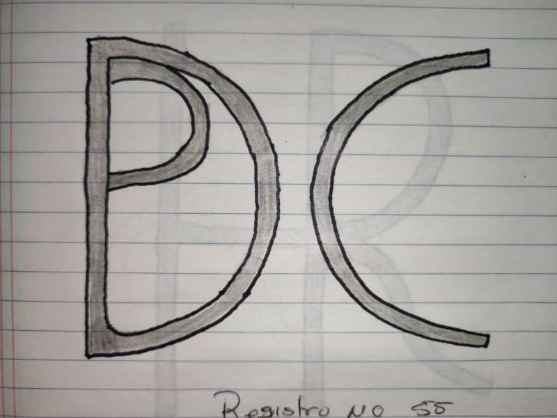 PDC
Registro NO 55